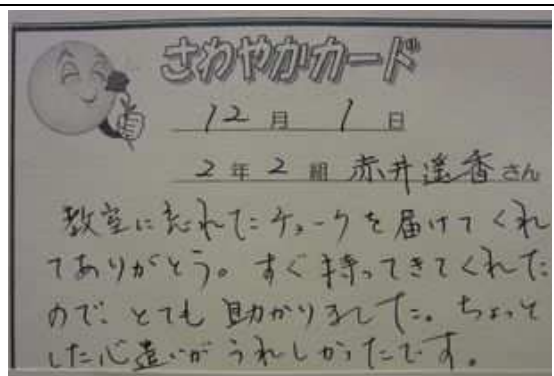 さわやかカード
12月1日
2年2組 赤井遥香さん
教室に忘れたチョークを届けてくれ
てありがとう。すぐ持ってきてくれた
ので、とても助かりました。ちょっと
した心遣いがうれしかったです。